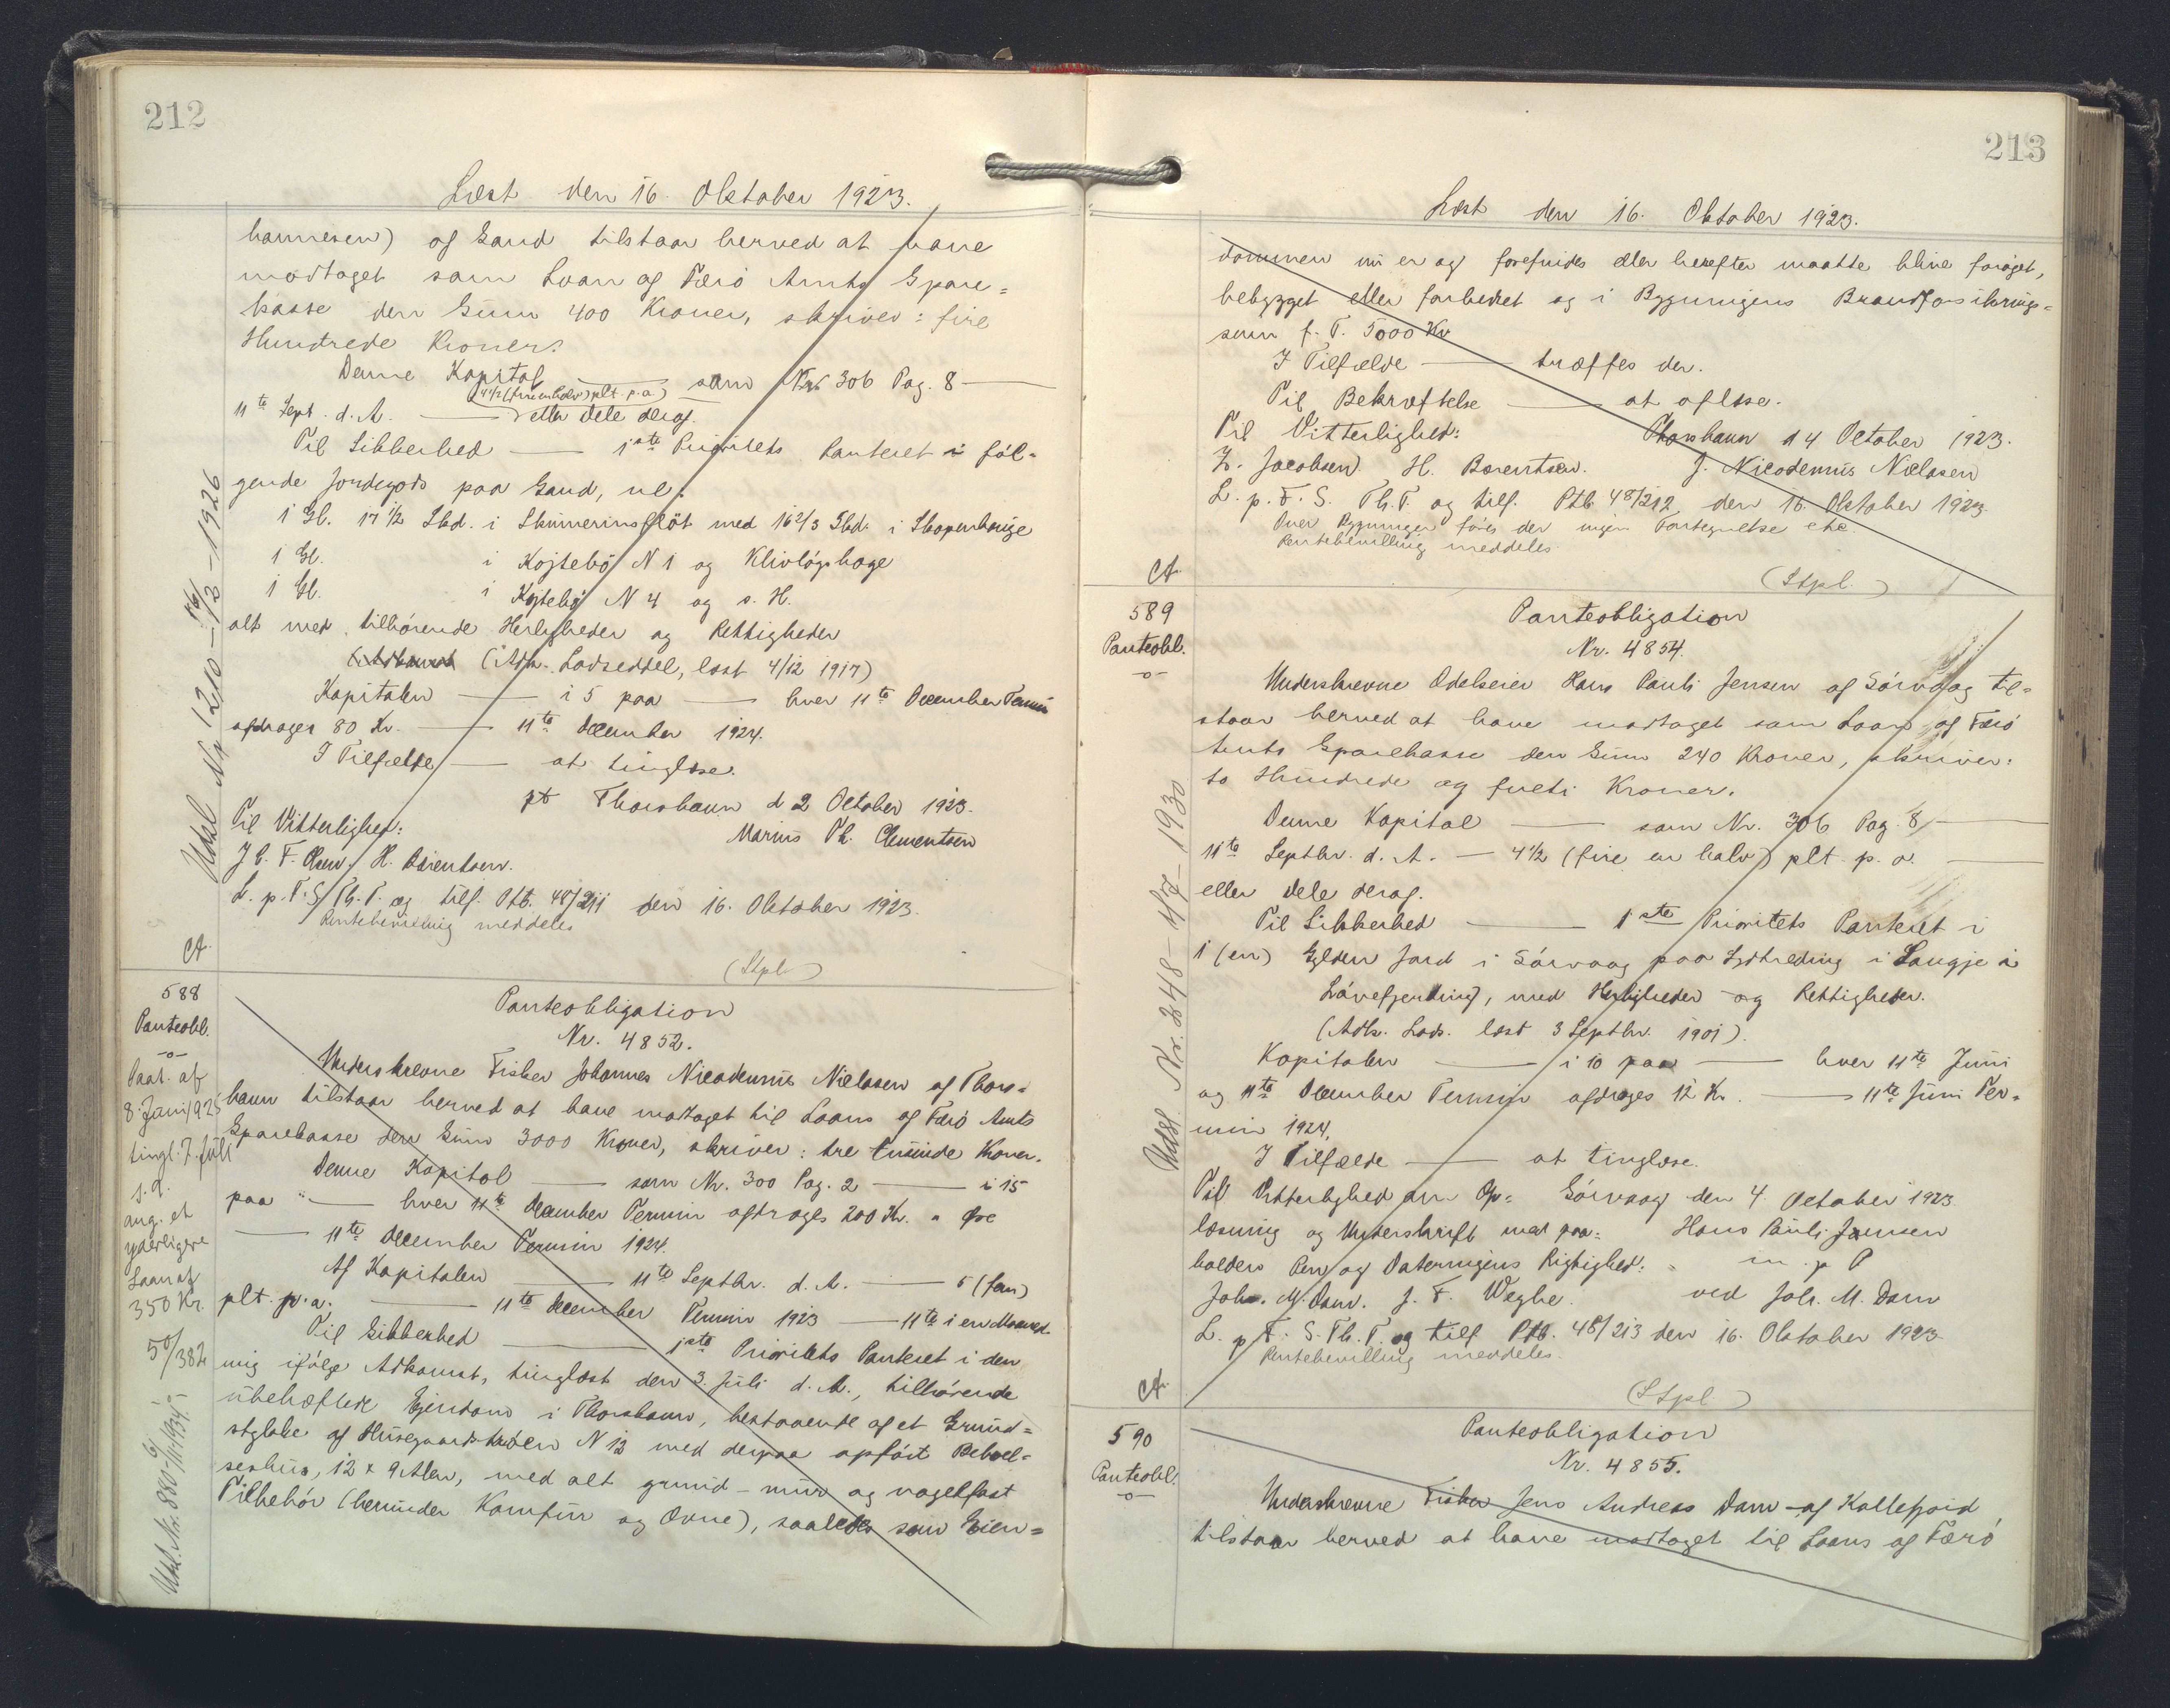 212
Læst den 16. Oktober 1923.
hannesen) af Sand tilstaar herved at have
modtaget som Laan af Færö Amts Spare=
kasse den Sum 400 Kroner, skriver: fire
Hundrede Kroner.
Denne Kapital — som Nr. 306 Pag. 8 —
4 1/2 (fire en halv) plt. p. a.)
11te Sept. d. A. — eller Dele deraf.
Til Sikkerhed — 1ste Prioritets Panteret i föl=
gende Jordegods paa Sand, nl:
1 Gl. 17 1/2 Skd. i Skinnerinsflöt med 16 2/3 Skd. i Skopenhauge
1 Gl. i Kojtebö N 1 og Klivlógshage
1 Gl. i Kojtebö N 4 og s. H.
alt med tilhörende Herligheder og Rettigheder
(Adk. Lodseddel, læst 4/12 1917)
Kapitalen — i 5 paa — hver 11te December Termin
afdrages 80 Kr. — 11te December 1924.
I Tilfælde — at tinglæse.
pt Thorshavn d 2 October 1923.
Til Vitterlighed:
Marius Th. Clementsen
H. Barentsen.
L. p. F. S. Th. T. og tilf. Ptb. 48/211 den 16. Oktober 1923.
Rentebevilling meddeles
Udsl Nr 1210 - 16/12 - 1926
(Stpl.)
588
Panteobl.
-o-
Paat. af
8. Juni 1925
tingl. 7. Juli
s. A.
ang. et
yderligere
Laan af
350 Kr.
50/382
Udsl. Nr. 880
Panteobligation
Nr. 4852.
Underskrevne Fisker Johannes Nicodemus Nielasen af Thors=
havn tilstaar herved at have modtaget til Laans af Færö Amts
Sparekasse den Sum 3000 Kroner, skriver: tre tusinde Kroner.
Denne Kapital — som Nr. 300 Pag. 2 — i 15
paa " — hver 11te December Termin afdrages 200 Kr. " Øre
— 11te December Termin 1924.
Af Kapitalen — 11te Septbr. d. A. — 5 (fem)
plt. p. a. — 11te December Termin 1923 — 11te i en Maaned.
Til Sikkerhed — 1ste Prioritets Panteret i den
mig ifølge Adkomst, tinglæst den 3. Juli d. A., tilhørende
ubehæftede Ejendom i Thorshavn, bestaaende af et Grund=
stykke af Husegaardstrøen N 12 med derpaa opført Beboel=
seshus, 12 x 9 Alen, med alt grund- mur og nagelfast
Tilbehör (herunder Komfur og Ovne), saaledes som Eien=
213
Læst den 16. Oktober 1923.
dommen nu er og forefindes eller herefter maatte blive forøget,
bebygget eller forbedret og i Bygningens Brandforsikrings=
sum f. T. 5000 Kr
I Tilfælde — træffes der.
Til Bekræftelse — at aflæse.
Til Vitterlighed: Thorshavn 14 October 1923.
Z. Jacobsen. H. Barentsen. J. Nicodemus Nielasen
L. p. F. S. Th. T. og tilf. Ptb 48/212 den 16. Oktober 1923
Over Bygninger föres der ingen Fortegnelse etc.
Rentebevilling meddeles
(Stpl.)
589
Panteobl.
-o-
Panteobligation
Nr. 4854.
Underskrevne Odelseier Hans Pauli Jensen af Sörvaag til=
staar herved at have modtaget som Laan af Færö
Amts Sparekasse den Sum 240 Kroner, skriver:
to Hundrede og fyrreti Kroner.
Denne Kapital — som Nr. 306 Pag. 8 —
11te Septbr. d. A. — 4 1/2 (fire en halv) plt. p. a. —
eller Dele deraf.
Til Sikkerhed — 1ste Prioritets Panteret i
1 (en) Gylden Jord i Sörvaag paa i Laugje á
med Herligheder og Rettigheder.
(Adk. Lods. læst 3 Septbr. 1901).
Kapitalen — i 10 paa — hver 11te Juni
og 11te December Termin afdrages 12 Kr. — 11te Juni Ter=
min 1924.
I Tilfælde — at tinglæse.
Til Vitterlighed om Op= Sörvaag den 4. October 1923
læsning og Underskrift med paa= Hans Pauli Jensen
holden Pen og Dateringens Rigtighed: m. p. P
Joh. M. Dam. J. F. Weyhe. ved Joh. M. Dam
L. p. F. S. Th. T. og tilf. Ptb. 48/213 den 16. Oktober 1923.
Rentebevilling meddeles.
Udsl. Nr. 248 - 4/7 - 1930
(Stpl.)
590
Panteobl.
-o-
Panteobligation
Nr. 4855.
Underskrevne Fisker Jens Andreas Dam af Kollefjord
tilstaar herved at have modtaget til Laans af Færö